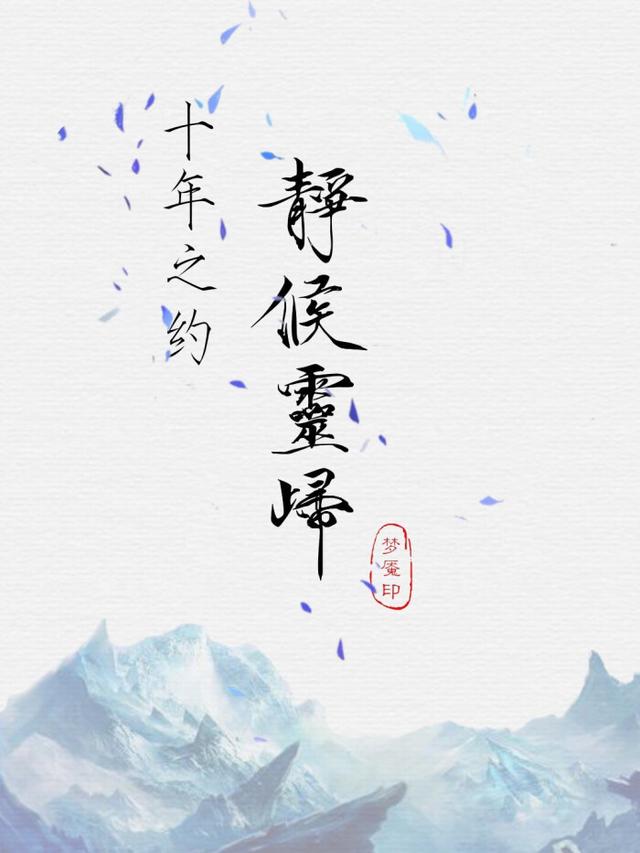 十年之约
静候靈歸
梦魇印